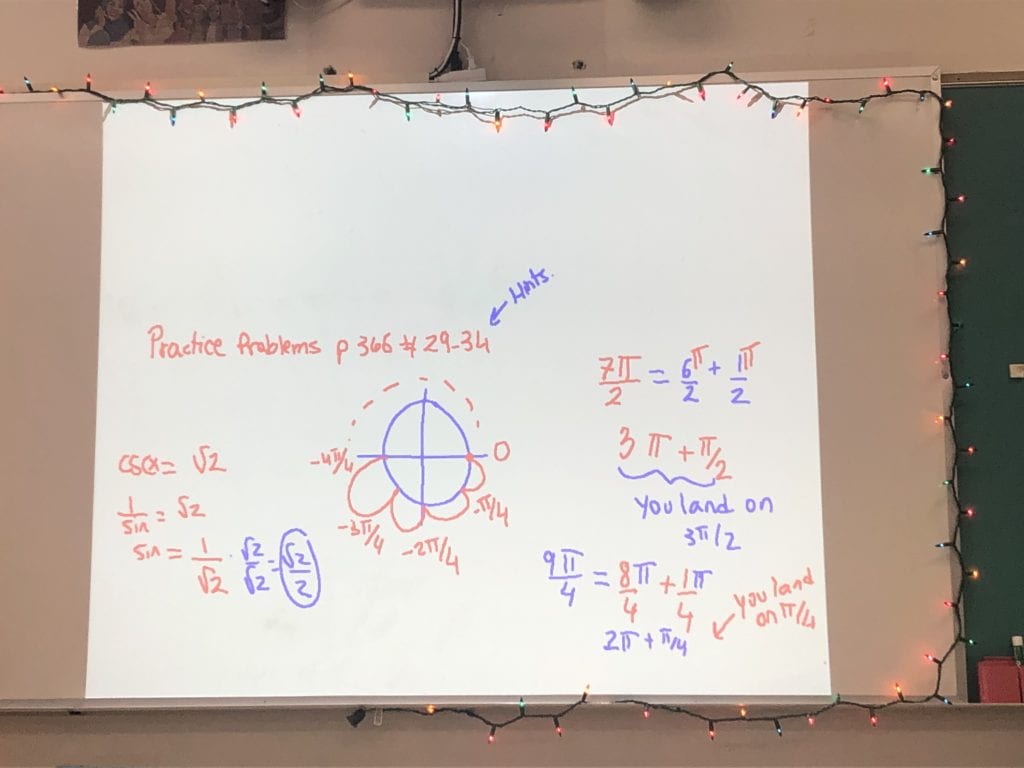 Hints.
Practice Problems p 366 # 29-34
cscx = √2
1/sin = √2
sin = 1/√2 · √2/√2 = √2/2
0
-4π/4
-3π/4
-2π/4
-π/4
7π/2 = 6π/2 + 1π/2
3π + π/2
you land on
3π/2
9π/4 = 8π/4 + 1π/4
2π + π/4
you land
on π/4